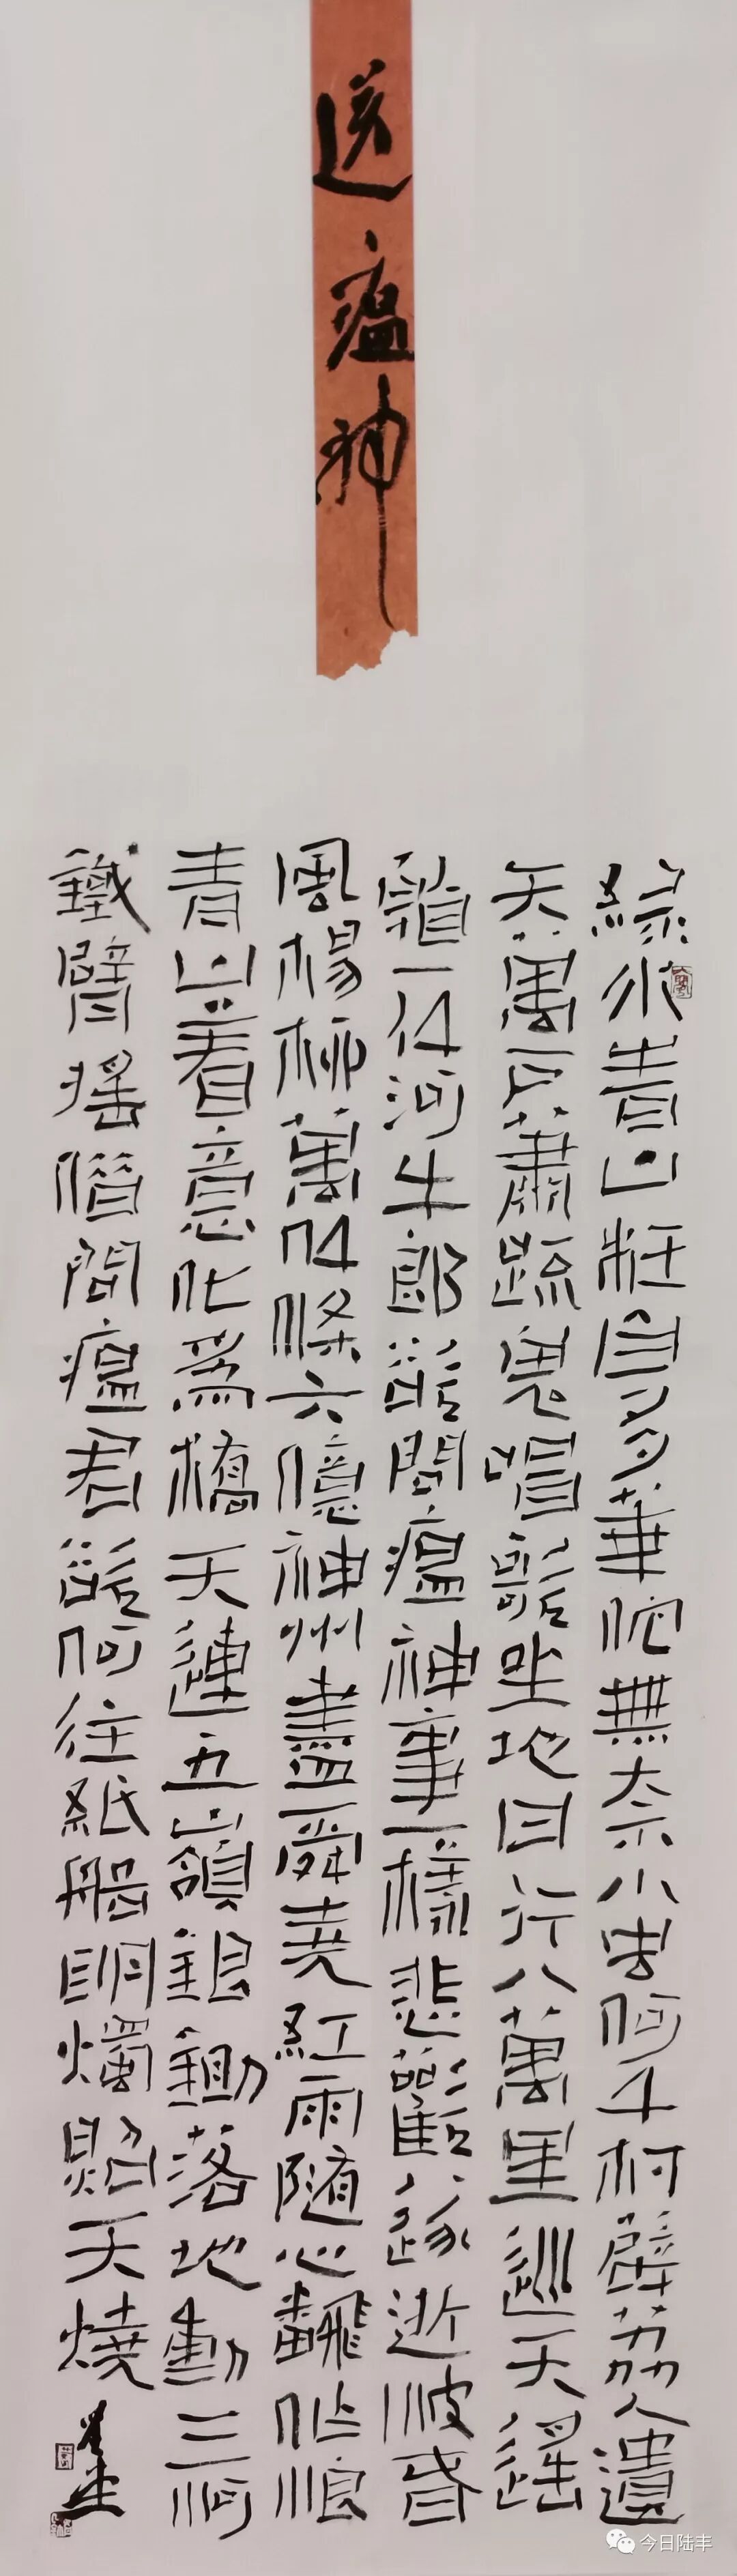 送瘟神
綠水青山枉自多華佗無奈小虫何千村薜荔人遺
矢萬戶蕭疏鬼唱歌坐地日行八萬里巡天遙
一千河牛郎欲問瘟神事一樣悲歡逐逝波春
風楊柳萬千條六億神州盡舜堯紅雨隨心飜作浪
青山著意化為橋天連五嶺銀鋤落地動三河
鐵臂搖借問瘟君欲何往紙船明燭照天燒
今日陆丰